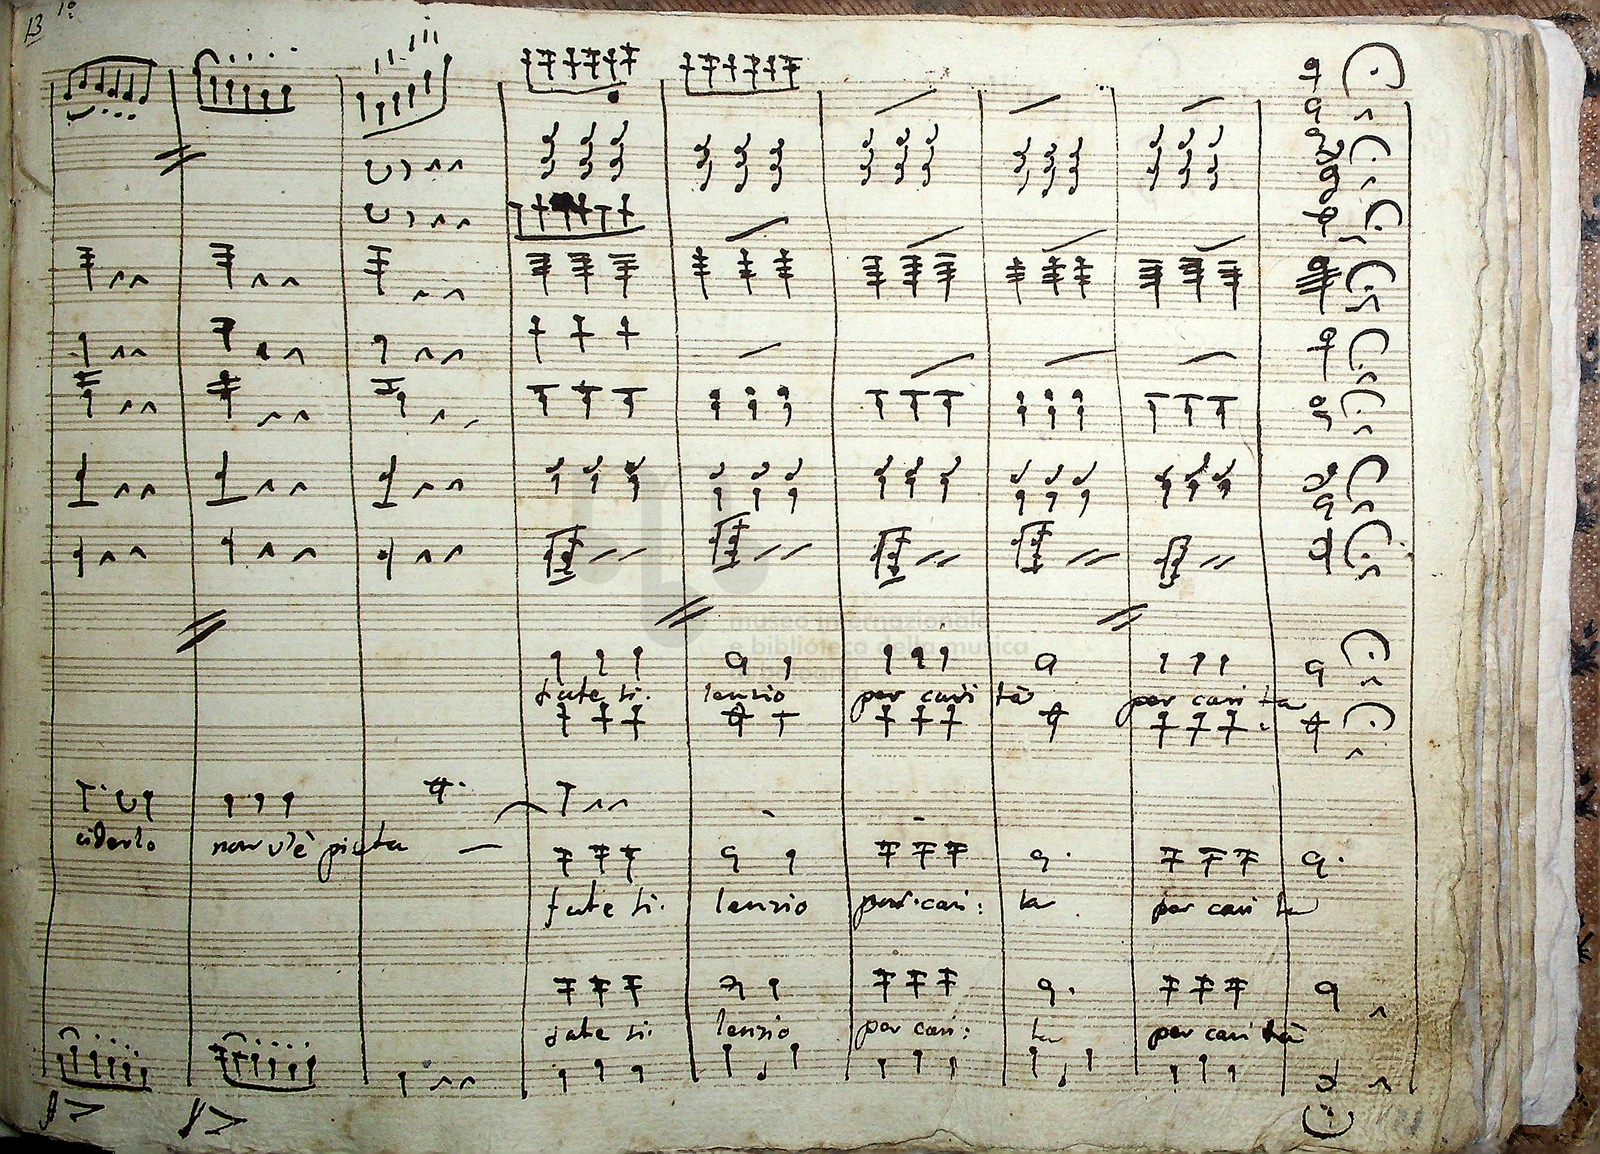 13
museo internazionale
e biblioteca della musica
fate si. lenzio per cari tà per cari ta
ciderlo non v'è pieta
fate si. lenzio per cari: ta per cari ta
fate si. lenzio per cari: ta per cari tà